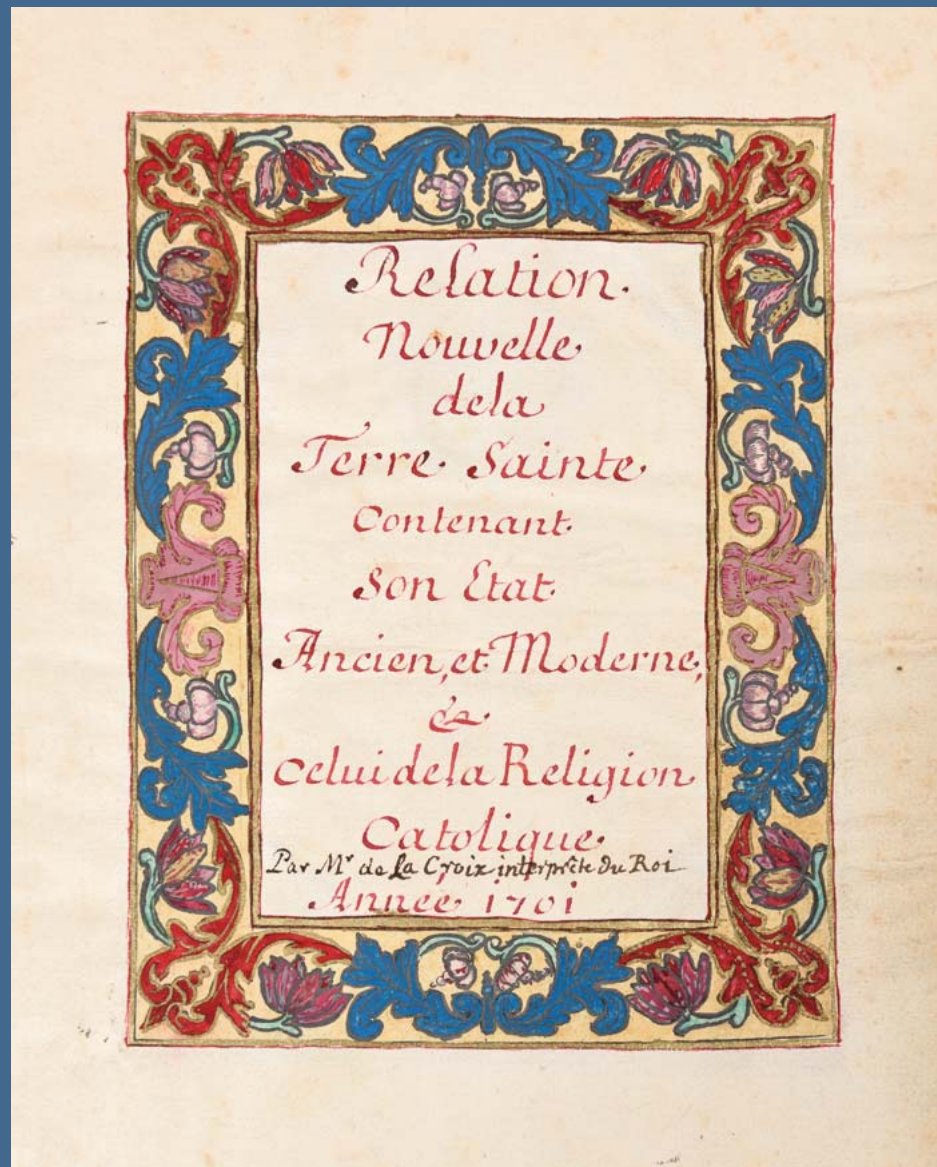 Relation.
Nouvelle
dela
Terre Sainte.
Contenant.
Son Etat.
Ancien, et Moderne,
&
Celui dela Religion
Catolique.
Par Mr de la Croix interprête du Roi
Année 1701